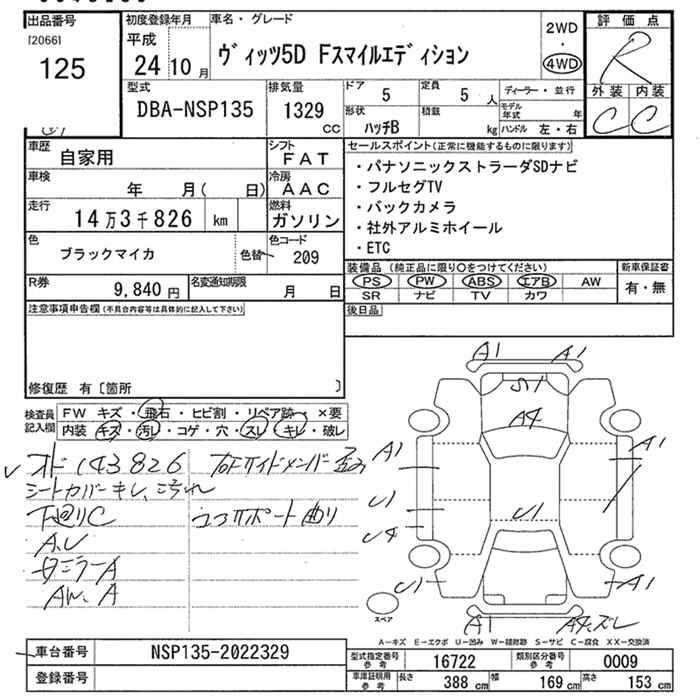 出品番号
[2066]
125
初度登録年月
平成
24 10 月
車名・グレード
ヴィッツ5D Fスマイルエディション
2WD
・
4WD
評価点
R
外装 内装
C C
型式
DBA-NSP135
排気量
1329
CC
ドア 5
定員 5 人
形状
ハッチB
積載
kg
ディーラー・並行
モデル年式 年
ハンドル 左・右
車歴
自家用
シフト
FAT
車検
年 月( 日)
冷房
AAC
走行
14万3千826 km
燃料
ガソリン
色
ブラックマイカ
色替
色コード
209
R券
9,840 円
名変通知期限
月 日
セールスポイント(正常に機能するものに限ります)
・パナソニックストラーダSDナビ
・フルセグTV
・バックカメラ
・社外アルミホイール
・ETC
装備品 (純正品に限り〇をつけてください)
PS PW ABS エアB AW
SR ナビ TV カワ
新車保証書
有・無
後日品
注意事項申告欄(不具合内容等は具体的に記入して下さい)
修復歴 有〔箇所 〕
検査員
記入欄
FW キズ・飛石・ヒビ割・リペア跡・×要
内装 キズ・汚れ・コゲ・穴・スレ・キレ・破レ
オド 143826
シートカバーキレ、汚れ
下廻りC
AW、A
コアサポート曲り
A1 A1
S1
A4
A1 A1
U1
U1
U4
U1 A1
A1 A4.ズレ
スペア
A-キズ E-エクボ U-凹み W-補修跡 S-サビ C-腐食 XX-交換済
車台番号
NSP135-2022329
登録番号
型式指定番号
参考
16722
類別区分番号
参考
0009
車庫証明用
参考
長さ 388 cm
幅 169 cm
高さ 153 cm